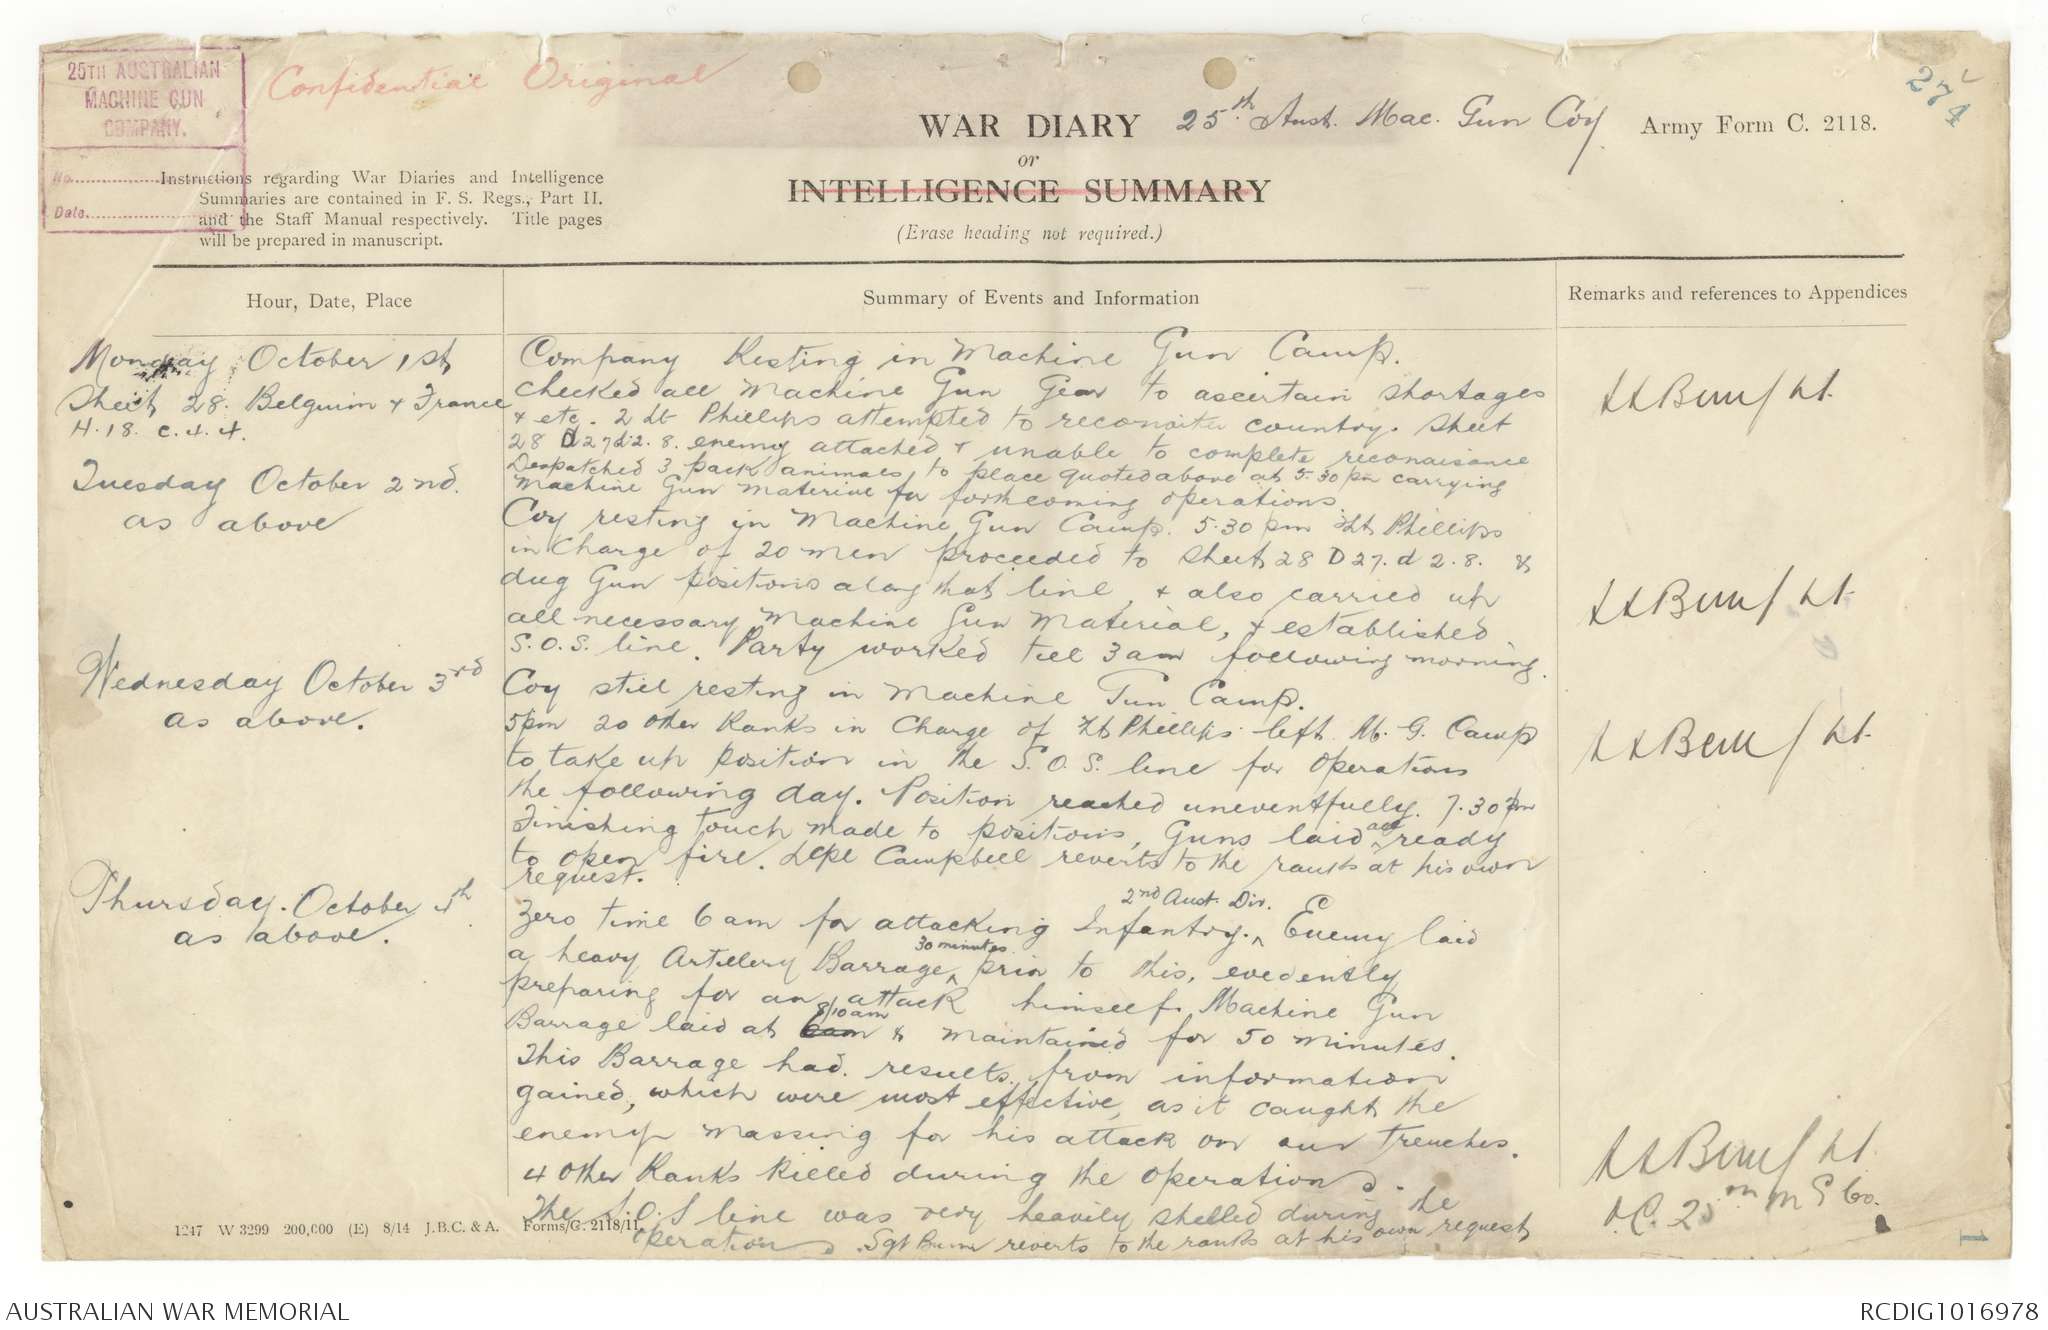 25TH AUSTRALIAN
MACHINE GUN
COMPANY.
No.
Date.
Confidential Original
274
WAR DIARY 25th Aust. Mac. Gun Coy Army Form C. 2118.
or
INTELLIGENCE SUMMARY
(Erase heading not required.)
Instructions regarding War Diaries and Intelligence
Summaries are contained in F. S. Regs., Part II.
and the Staff Manual respectively. Title pages
will be prepared in manuscript.
Hour, Date, Place
Summary of Events and Information
Remarks and references to Appendices
Monday October 1st
Sheet 28. Belguim & France
H.18. c.4.4.
Company Resting in Machine Gun Camp.
checked all Machine Gun Gear to ascertain shortages
& etc. 2 Lt Phillips attempted to reconoitre country. Sheet
28 D27d.2.8. enemy attached & unable to complete reconaisance
Despatched 3 pack animals to place quoted above at 5.30 pm carrying
Machine Gun Material for forthcoming operations.
Lt.
Tuesday October 2nd.
as above
Coy resting in Machine Gun Camp. 5.30 pm Lt Phillips
in Charge of 20 men proceeded to Sheet 28 D27.d 2.8. &
dug Gun positions along that line, & also carried up
all necessary Machine Gun Material, & established
S.O.S. line. Party worked till 3 am following morning.
Lt.
Wednesday October 3rd
as above.
Coy still resting in Machine Gun Camp.
5pm 20 Other Ranks in Charge of Lt Phillips left M. G. Camp
to take up position in the S.O.S. line for operations
the following day. Position reached uneventfully. 7.30 pm
Finishing touch made to positions, Guns laid all ready
to open fire. L/Cpl Campbell reverts to the ranks at his own
request.
Lt.
Thursday. October 4th
as above.
Zero time 6 am for attacking Infantry. 2nd Aust. Div. Enemy laid
a heavy Artillery Barrage 30 minutes prior to this, evedently
preparing for an attack himself. Machine Gun
Barrage laid at 6am 8/10am & maintained for 50 minutes.
This Barrage had results from information
gained, which were most effective, as it caught the
enemy massing for his attack on our trenches.
4 Other Ranks killed during the operations.
The S.O.S line was very heavily shelled during the
operations. Sgt reverts to the ranks at his own request
Lt.
O.C. 25th M G Co.
1247 W 3299 200,000 (E) 8/14 J.B.C. & A. Forms/C. 2118/11.
1
AUSTRALIAN WAR MEMORIAL
RCDIG1016978